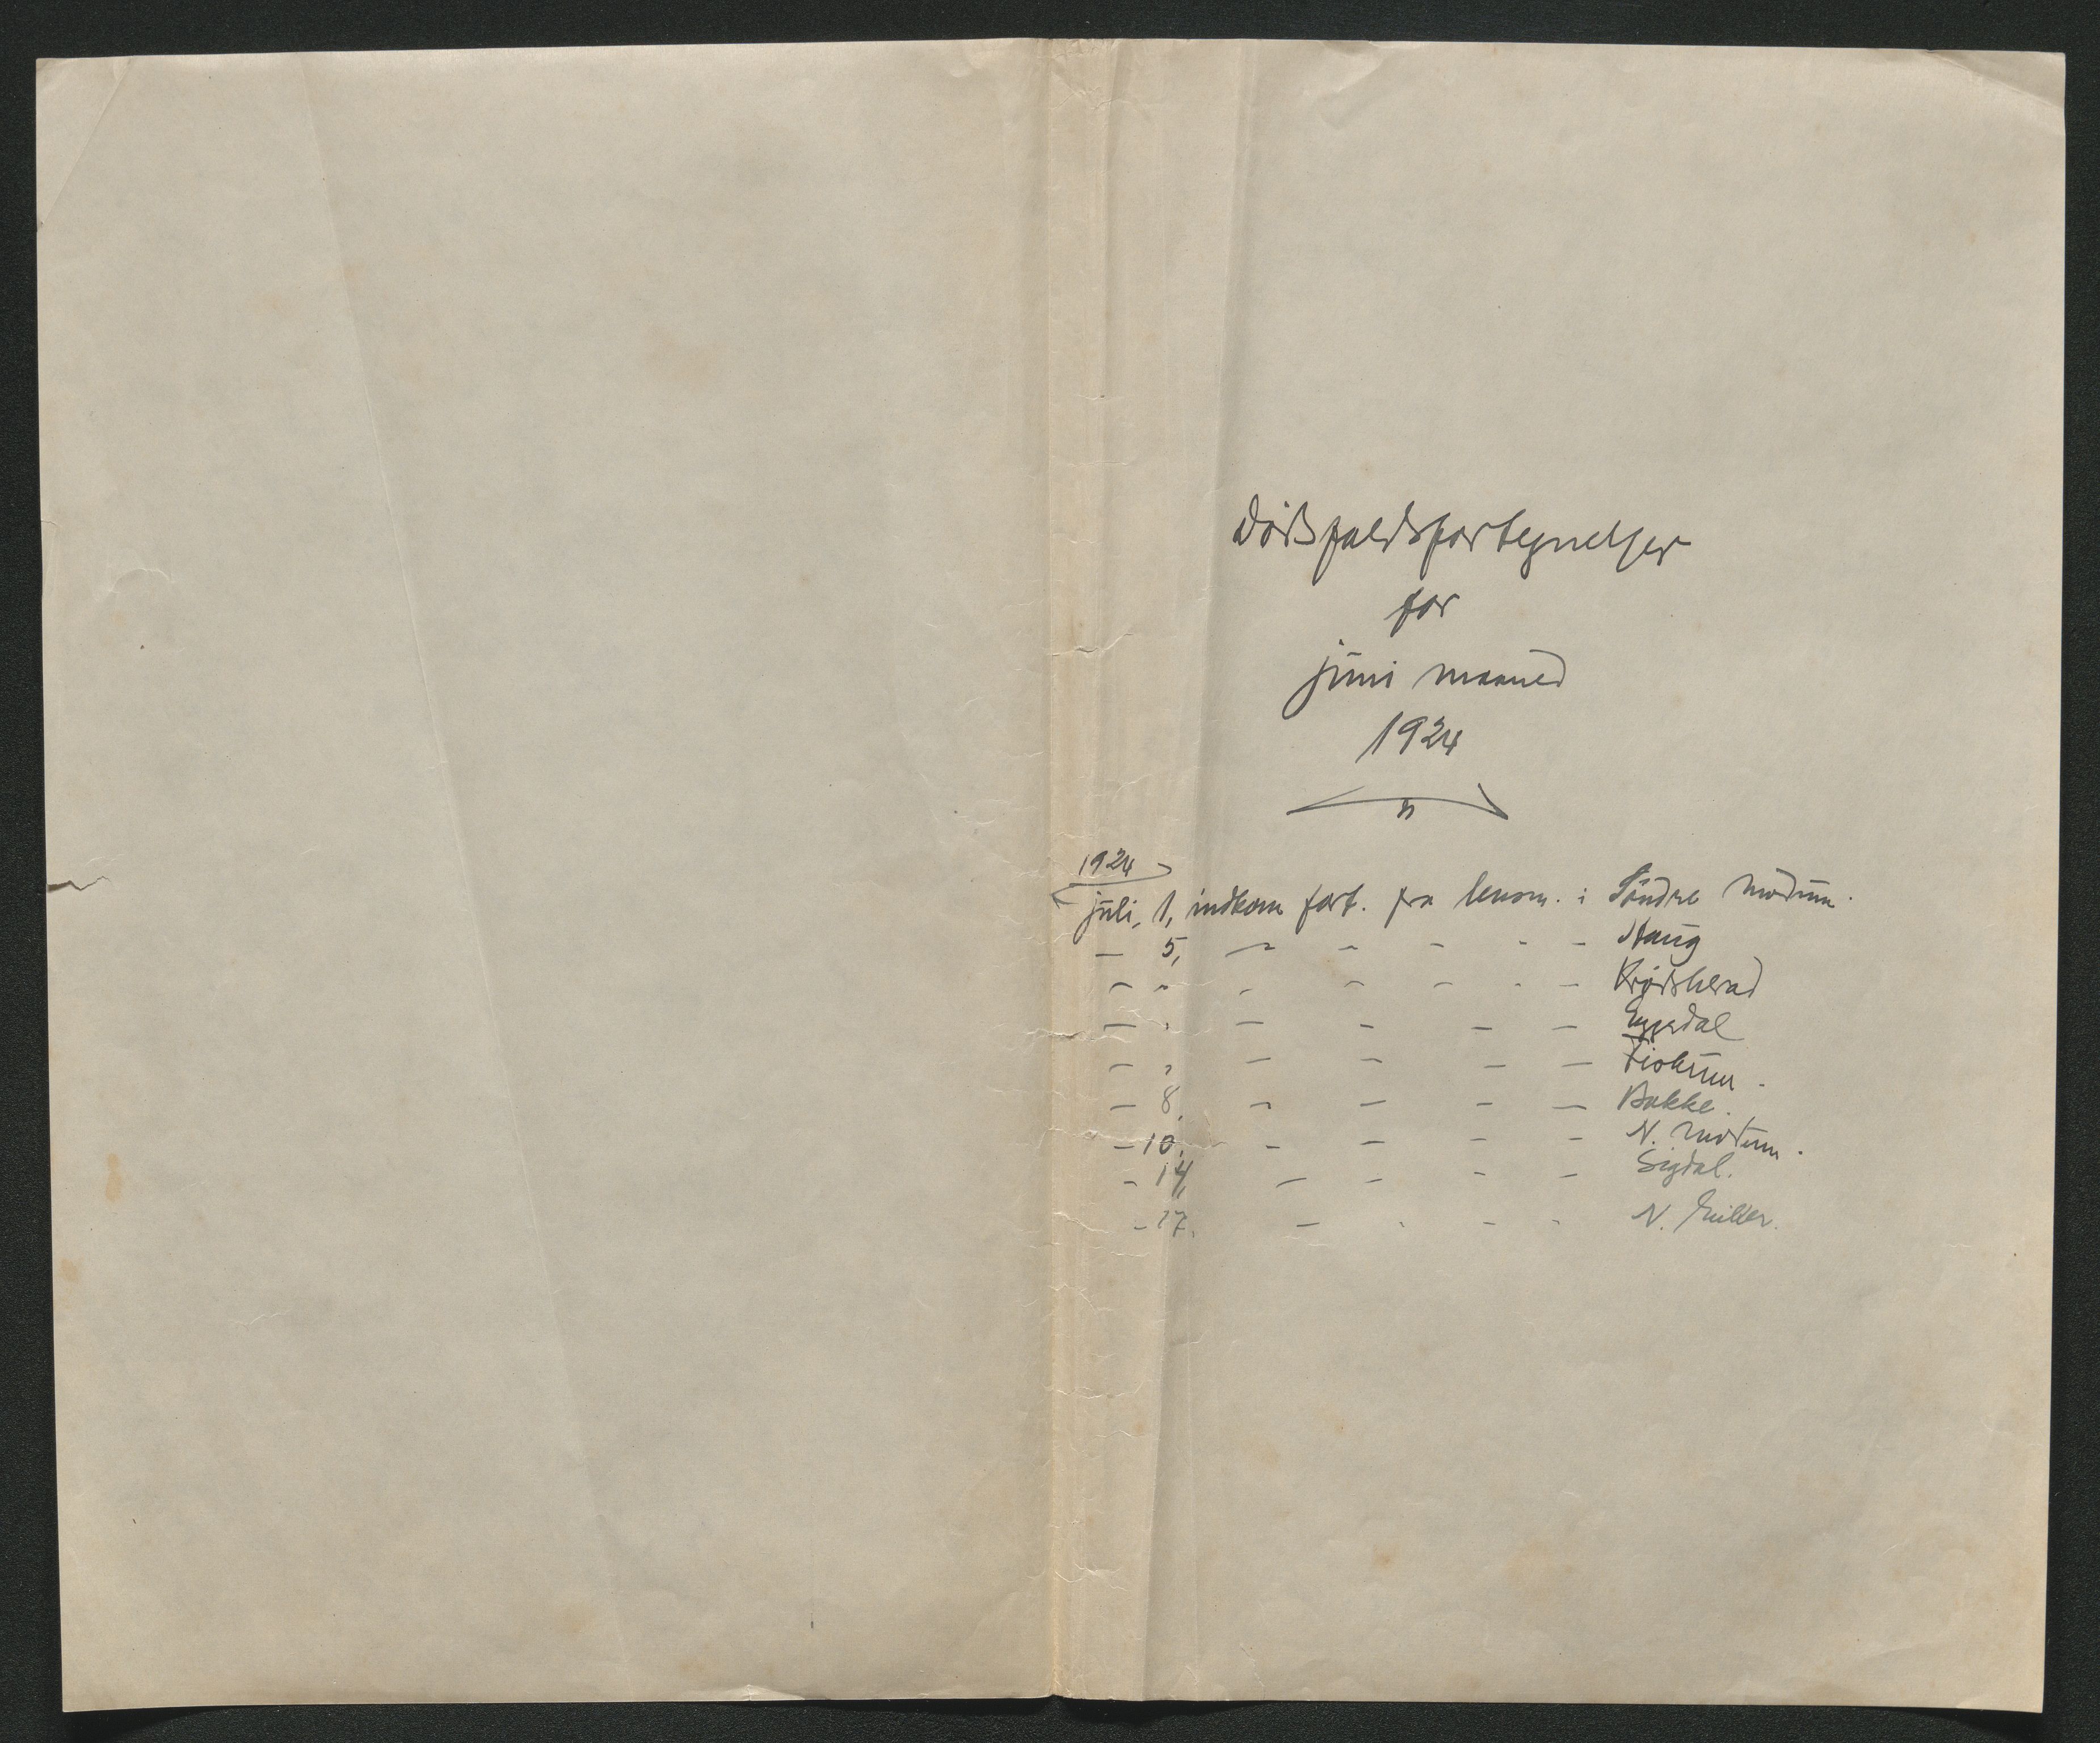 Dødsfaldsfortegnelser
for
juni maaned
1924
"
1924
juli, 1, indkom fort. fra lensm. i Søndre Modum.
— 5, — - - - - Haug
— " - - - - - Krødsherad
— " — - — — Eggedal
— " — — — — Fiskum.
— 8, - — — — Bakke.
— 10, - — - - N. Modum.
- 14, — — - — Sigdal.
- 17. — - - - N. Eiker.